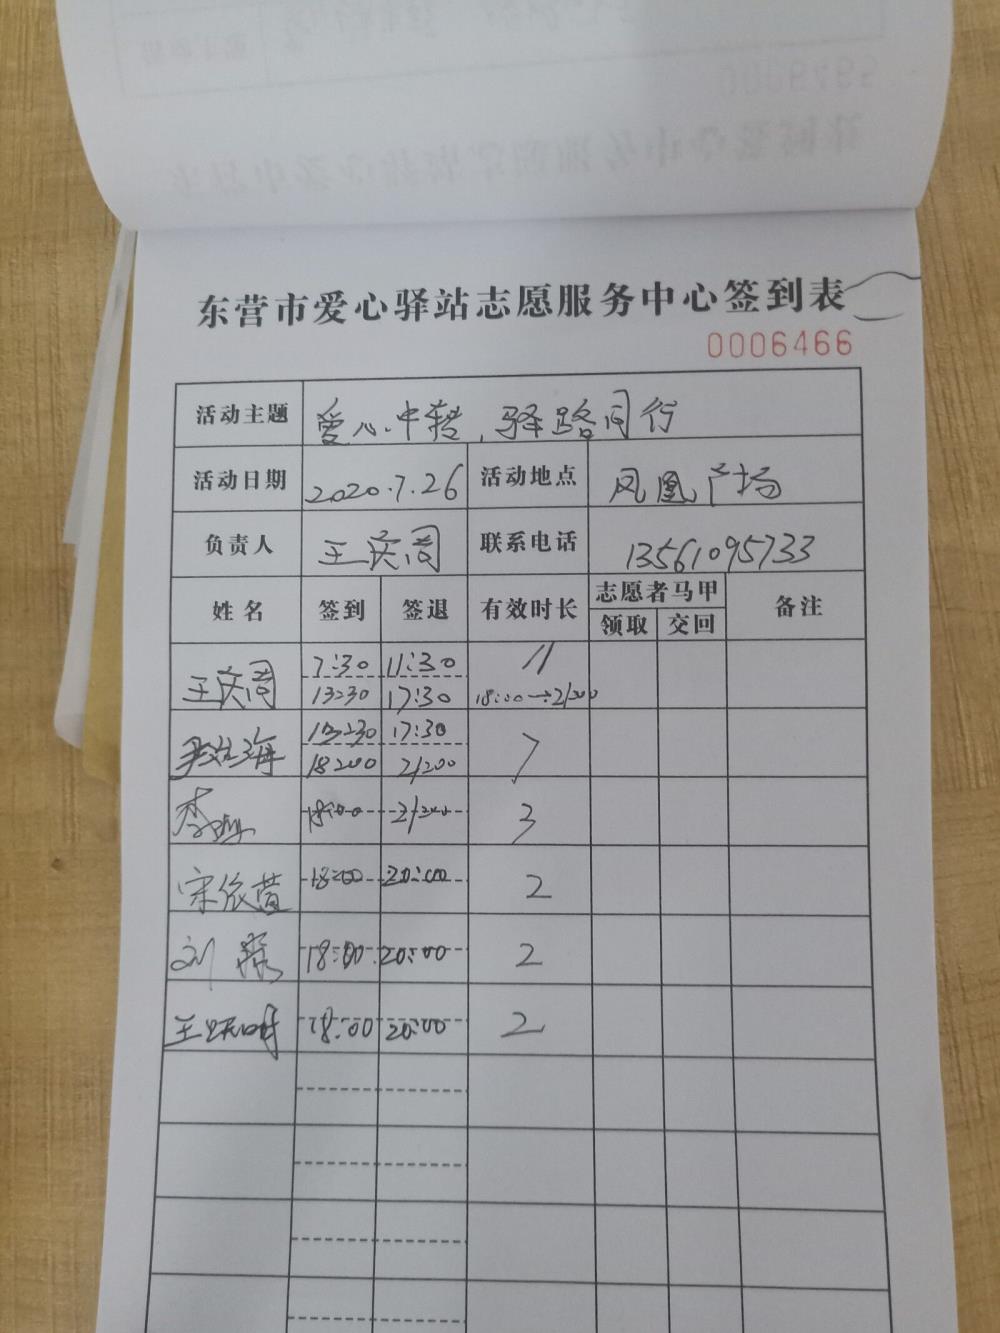 东营市爱心驿站志愿服务中心签到表
0006466
活动主题 爱心中转,驿路同行
活动日期 2020.7.26 活动地点 凤凰广场
负责人 王庆周 联系电话 13561095733
姓名 签到 签退 有效时长 志愿者马甲 备注
领取 交回
王庆周 7:30 11:30 11
13:30 17:30 18:00→21:00
海 13:30 17:30 7
18:00 21:00
李 18:00 21:00 3
宋依萱 18:00 20:00 2
刘 18:00 20:00 2
王 18:00 20:00 2